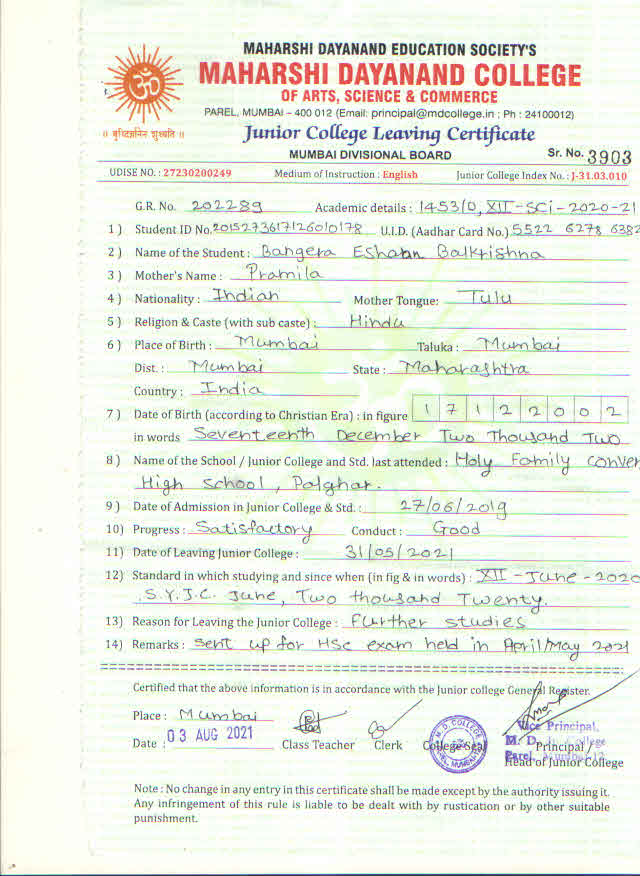 MAHARSHI DAYANAND EDUCATION SOCIETY'S
MAHARSHI DAYANAND COLLEGE
OF ARTS, SCIENCE & COMMERCE
PAREL, MUMBAI – 400 012 (Email: principal@mdcollege.in ; Ph : 24100012)
Junior College Leaving Certificate
MUMBAI DIVISIONAL BOARD Sr. No. 3903
UDISE NO. : 27230200249 Medium of Instruction : English Junior College Index No. : J-31.03.010
G.R. No. 202289 Academic details : 1453/0, XII-SCi-2020-21
1 ) Student ID No. 2015273617126010178 U.I.D. (Aadhar Card No.) 5522 6278 6382
2 ) Name of the Student : Bangera Eshaan Balkrishna
3 ) Mother's Name : Pramila
4 ) Nationality : Indian Mother Tongue: Tulu
5 ) Religion & Caste (with sub caste) : Hindu
6 ) Place of Birth : Mumbai Taluka : Mumbai
Dist. : Mumbai State : Maharashtra
Country : India
7 ) Date of Birth (according to Christian Era) : in figure 1 7 1 2 2 0 0 2
in words Seventeenth December Two Thousand Two
8 ) Name of the School / Junior College and Std. last attended : Holy Family conven
High school, Palghar.
9 ) Date of Admission in Junior College & Std. : 27/06/2019
10) Progress : Satisfactory Conduct : Good
11) Date of Leaving Junior College : 31/05/2021
12) Standard in which studying and since when (in fig & in words) : XII - June - 2020
S.Y.J.C. June, Two thousand Twenty.
13) Reason for Leaving the Junior College : Further studies
14) Remarks : Sent up for HSC exam held in April/May 2021
Certified that the above information is in accordance with the Junior college General Register.
Place : Mumbai
Date : 03 AUG 2021 Class Teacher Clerk College Seal Principal /
Vice Principal,
Head of Junior College
Note : No change in any entry in this certificate shall be made except by the authority issuing it.
Any infringement of this rule is liable to be dealt with by rustication or by other suitable
punishment.